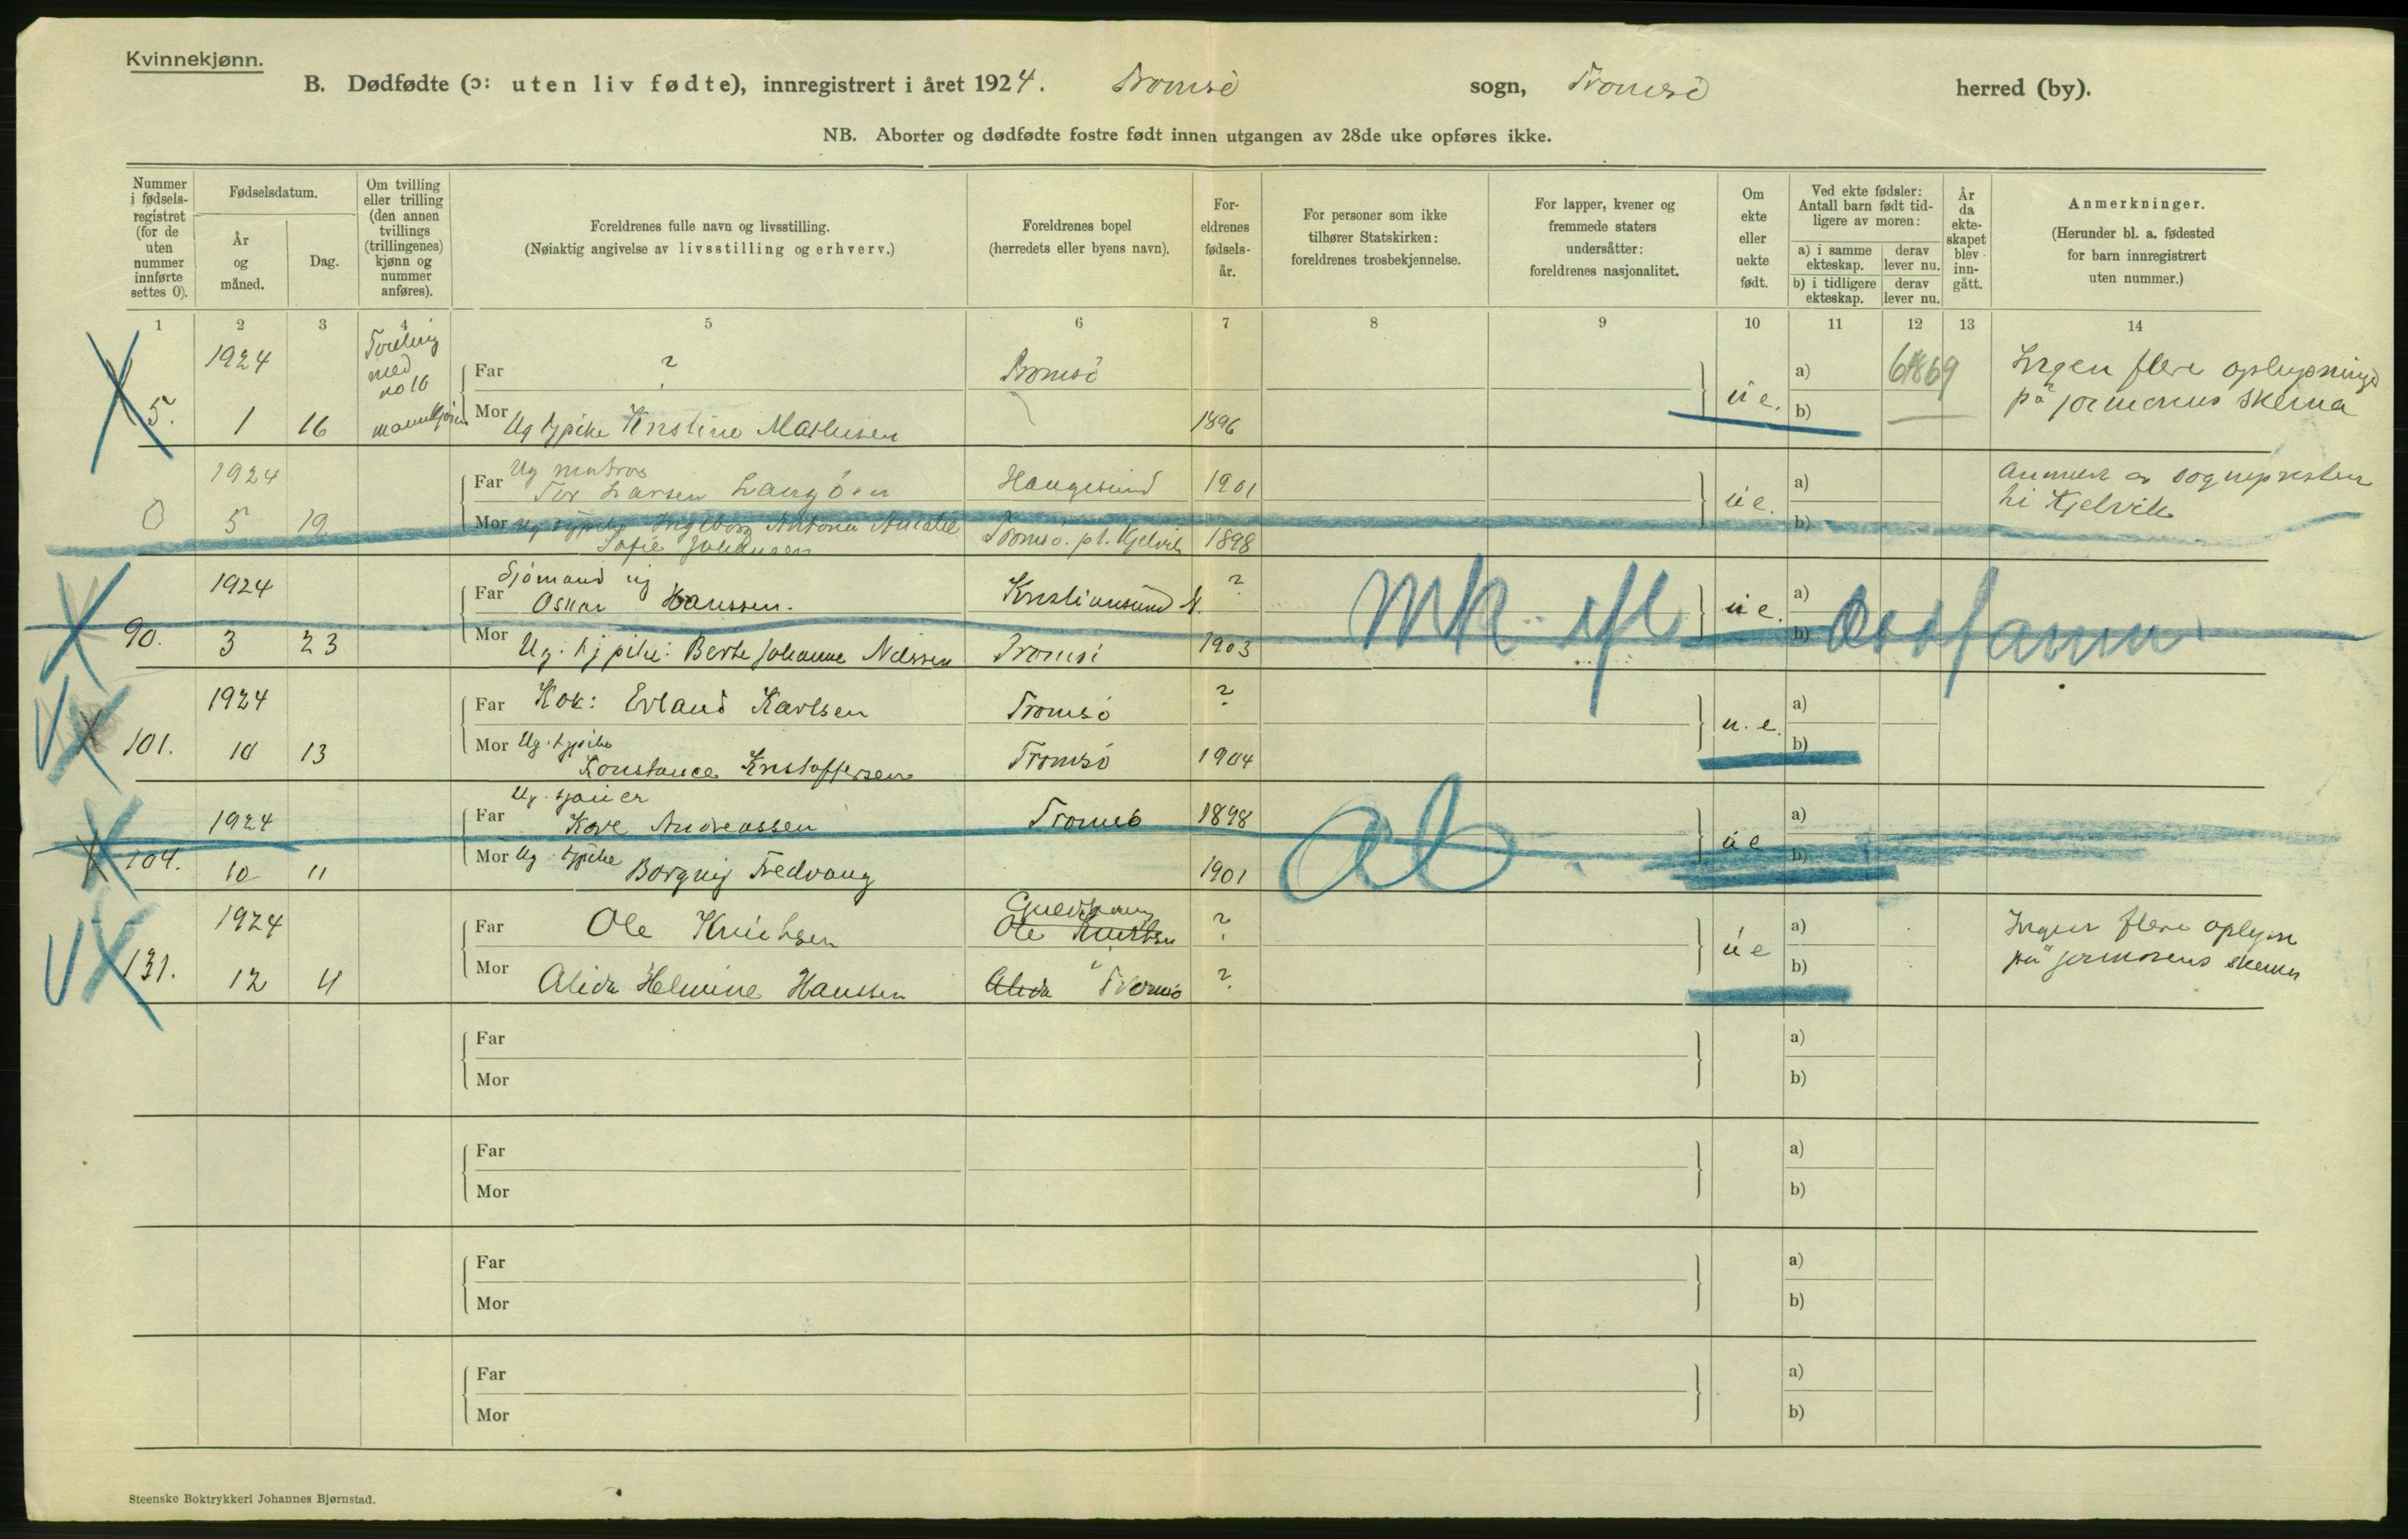 Kvinnekjønn.
B. Dødfødte (ɔ: uten liv fødte), innregistrert i året 1924. Tromsö sogn, Tromsö herred (by).
NB. Aborter og dødfødte fostre født innen utgangen av 28de uke opføres ikke.
Nummer
i fødsels-
registret
(for de
uten
nummer
innførte
settes 0).
Fødselsdatum.
År
og
måned.
Dag.
Om tvilling
eller trilling
(den annen
tvillings
(trillingenes)
kjønn og
nummer
anføres).
Foreldrenes fulle navn og livsstilling.
(Nøiaktig angivelse av livsstilling og erhverv.)
Foreldrenes bopel
(herredets eller byens navn).
For-
eldrenes
fødsels-
år.
For personer som ikke
tilhører Statskirken:
foreldrenes trosbekjennelse.
For lapper, kvener og
fremmede staters
undersåtter:
foreldrenes nasjonalitet.
Om
ekte
eller
uekte
født.
Ved ekte fødsler:
Antall barn født tid-
ligere av moren:
a) i samme
ekteskap.
derav
lever nu.
b) i tidligere
ekteskap.
derav
lever nu.
År
da
ekte-
skapet
blev
inn-
gått.
Anmerkninger.
(Herunder bl. a. fødested
for barn innregistrert
uten nummer.)
1 2 3 4 5 6 7 8 9 10 11 12 13 14
1924
med
no 16
mannkjønn
Far ? Tromsö
a)
5. 1 16
Mor Ug tjpike Kristine Mathisen 1896
u e. b)
Ingen flere
på jormorens skema
1924
Far Ug matros
Larsen Haugesund 1901
a)
0 5 19
Mor Ug tjpike Ingeborg Antona Amalie
Sofie Johansen
Tromsö. pt. Kjelvik 1898
u e. b)
av sognepresten
til Kjelvik
1924
Far Sjömand ug
Oskar Hanssen. Kristiansund N. ?
a)
90. 3 23
Mor Ug. tjpike: Berte Johanne Nilssen Tromsö 1903
u e. b)
1924
Far Kok: Erland Karlsen Tromsö ?
a)
101. 10 13
Mor Ug. tjpike
Konstance Kristoffersen Tromsö 1904
u. e. b)
1924
Far Ug.
Kåre Andreassen Tromsö 1898
a)
104. 10 11
Mor Ug. tjpike Borgny Fredvang 1901
u e b)
1924
Far Ole Knutsen
Ole Knutsen ?
a)
131. 12 4
Mor Alida Helmine Hanssen Alida Tromsö ?
u e b)
Ingen flere
på jormorens skema
Far a)
Mor b)
Far a)
Mor b)
Far a)
Mor b)
Far a)
Mor b)
Steenske Boktrykkeri Johannes Bjørnstad.